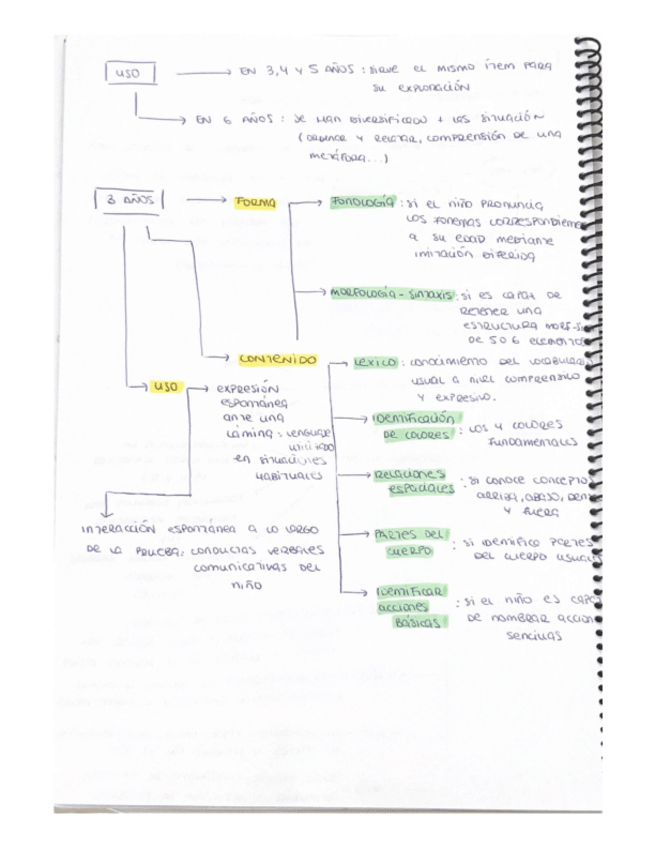 USO
EN 3, 4 Y 5 AÑOS : SIRVE EL MISMO ÍTEM PARA
SU EXPLORACIÓN
EN 6 AÑOS : SE HAN DIVERSIFICADO + LAS SITUACIÓN
(ORDENAR Y RELATAR, COMPRENSIÓN DE UNA
METÁFORA...)
3 AÑOS
FORMA
FONOLOGÍA : SI EL NIÑO PRONUNCIA
LOS FONEMAS CORRESPONDIEN
A SU EDAD MEDIANTE
IMITACIÓN DIFERIDA
MORFOLOGÍA - SINTAXIS : SI ES CAPAZ DE
RETENER UNA
ESTRUCTURA MORF-SI
DE 5 O 6 ELEMENTOS
CONTENIDO
LÉXICO : CONOCIMIENTO DEL VOCABULARIO
USUAL A NIVEL COMPRENSIVO
Y EXPRESIVO.
IDENTIFICACIÓN
DE COLORES : LOS 4 COLORES
FUNDAMENTALES
RELACIONES
ESPACIALES : SI CONOCE CONCEPTO
ARRIBA, ABAJO, DEN
Y FUERA
PARTES DEL
CUERPO : SI IDENTIFICA PARTES
DEL CUERPO USUAL
IDENTIFICAR
ACCIONES
BÁSICAS : SI EL NIÑO ES CAPA
DE NOMBRAR ACCION
SENCILLAS
USO
EXPRESIÓN
ESPONTÁNEA
ANTE UNA
LÁMINA : LENGUAJE
UTILIZADO
EN SITUACIONES
HABITUALES
INTERACCIÓN ESPONTÁNEA A LO LARGO
DE LA PRUEBA: CONDUCTAS VERBALES
COMUNICATIVAS DEL
NIÑO